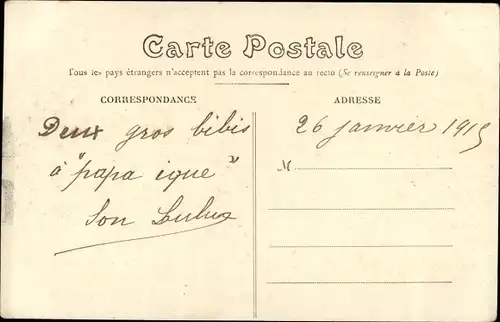 Carte Postale
Tous les pays étrangers n'acceptent pas la correspondance au recto (Se renseigner à la Poste)
CORRESPONDANCE
ADRESSE
Deux gros bibis
à "papa ique"
Son Lulux
26 janvier 1915
M